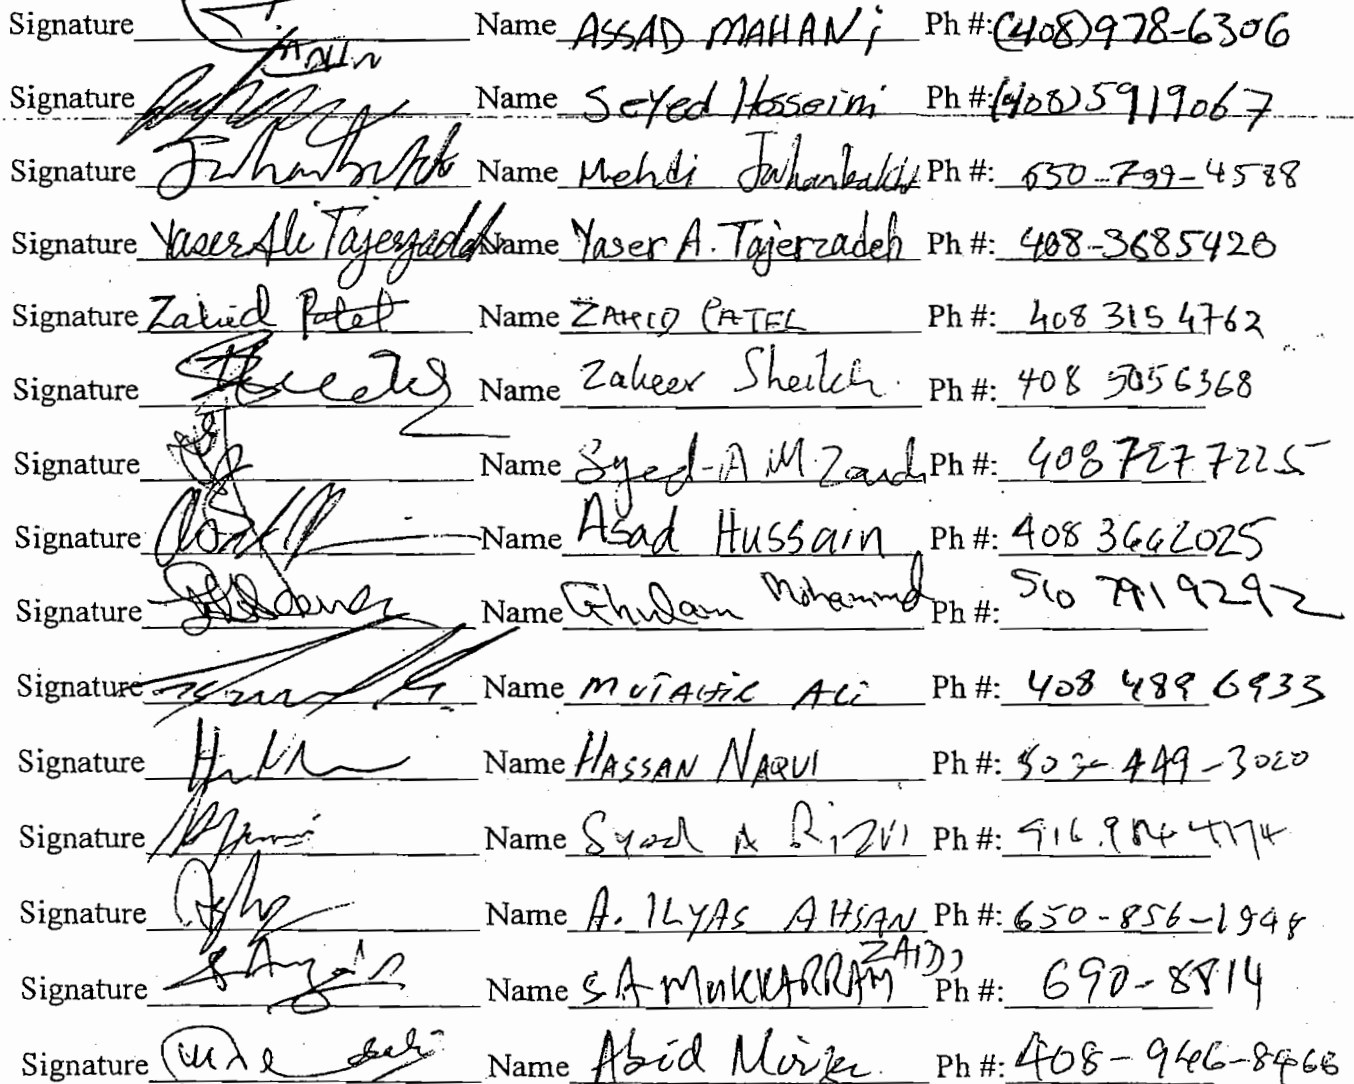 Signature Name ASSAD MAHANi Ph #: (408)978-6306
Signature Name Seyed Hosseini Ph #: (408)5919067
Signature Name Mehdi Jahanbakhsh Ph #: 650-799-4588
Signature Yaser Ali Tajerzadeh Name Yaser A. Tajerzadeh Ph #: 408-3685420
Signature Zahid Patel Name ZAHID PATEL Ph #: 408 315 4762
Signature Name Zaheer Sheikh Ph #: 408 5056368
Signature Name Syed-A M Zaidi Ph #: 408 727 7225
Signature Name Asad Hussain Ph #: 408 3662025
Signature Name Ghulam Mohammed Ph #: 510 7919292
Signature Name Ali Ph #: 408 489 6933
Signature Name HASSAN NAQVI Ph #: 449-3020
Signature Name Syed A Rizvi Ph #:
Signature Name A. ILYAS AHSAN Ph #: 650-856-1948
Signature Name S A MUKKARRAM ZAIDI Ph #: 690-8814
Signature Name Abid Mirza Ph #: 408-946-8466